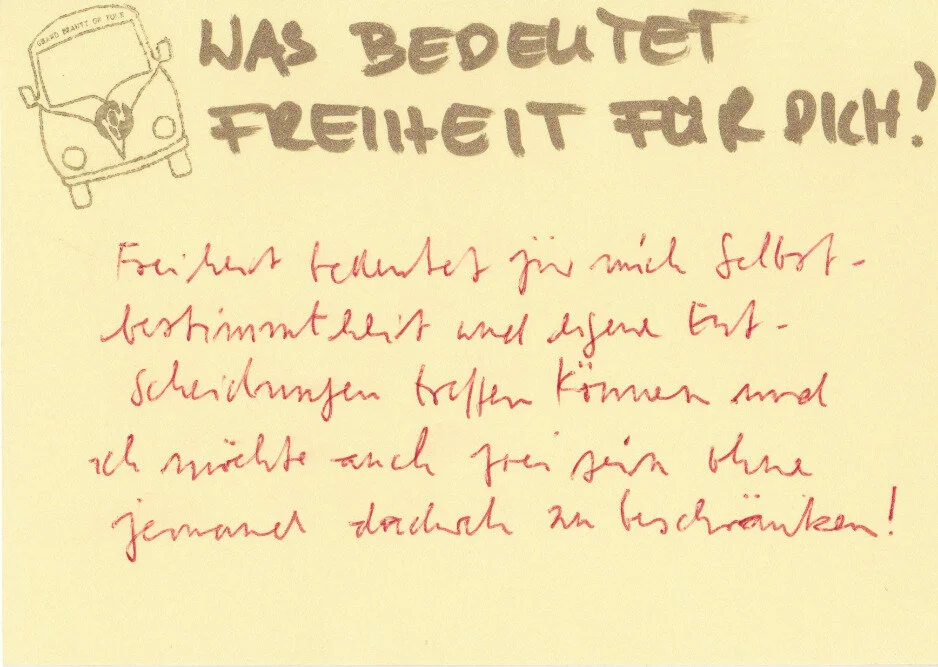 GRAND BEAUTY ON TOUR
WAS BEDEUTET
FREIHEIT FÜR DICH?
Freiheit bedeutet für mich Selbst-
bestimmtheit und eigene Ent-
scheidungen treffen können und
ich möchte auch frei sein ohne
jemand dadurch zu beschränken!